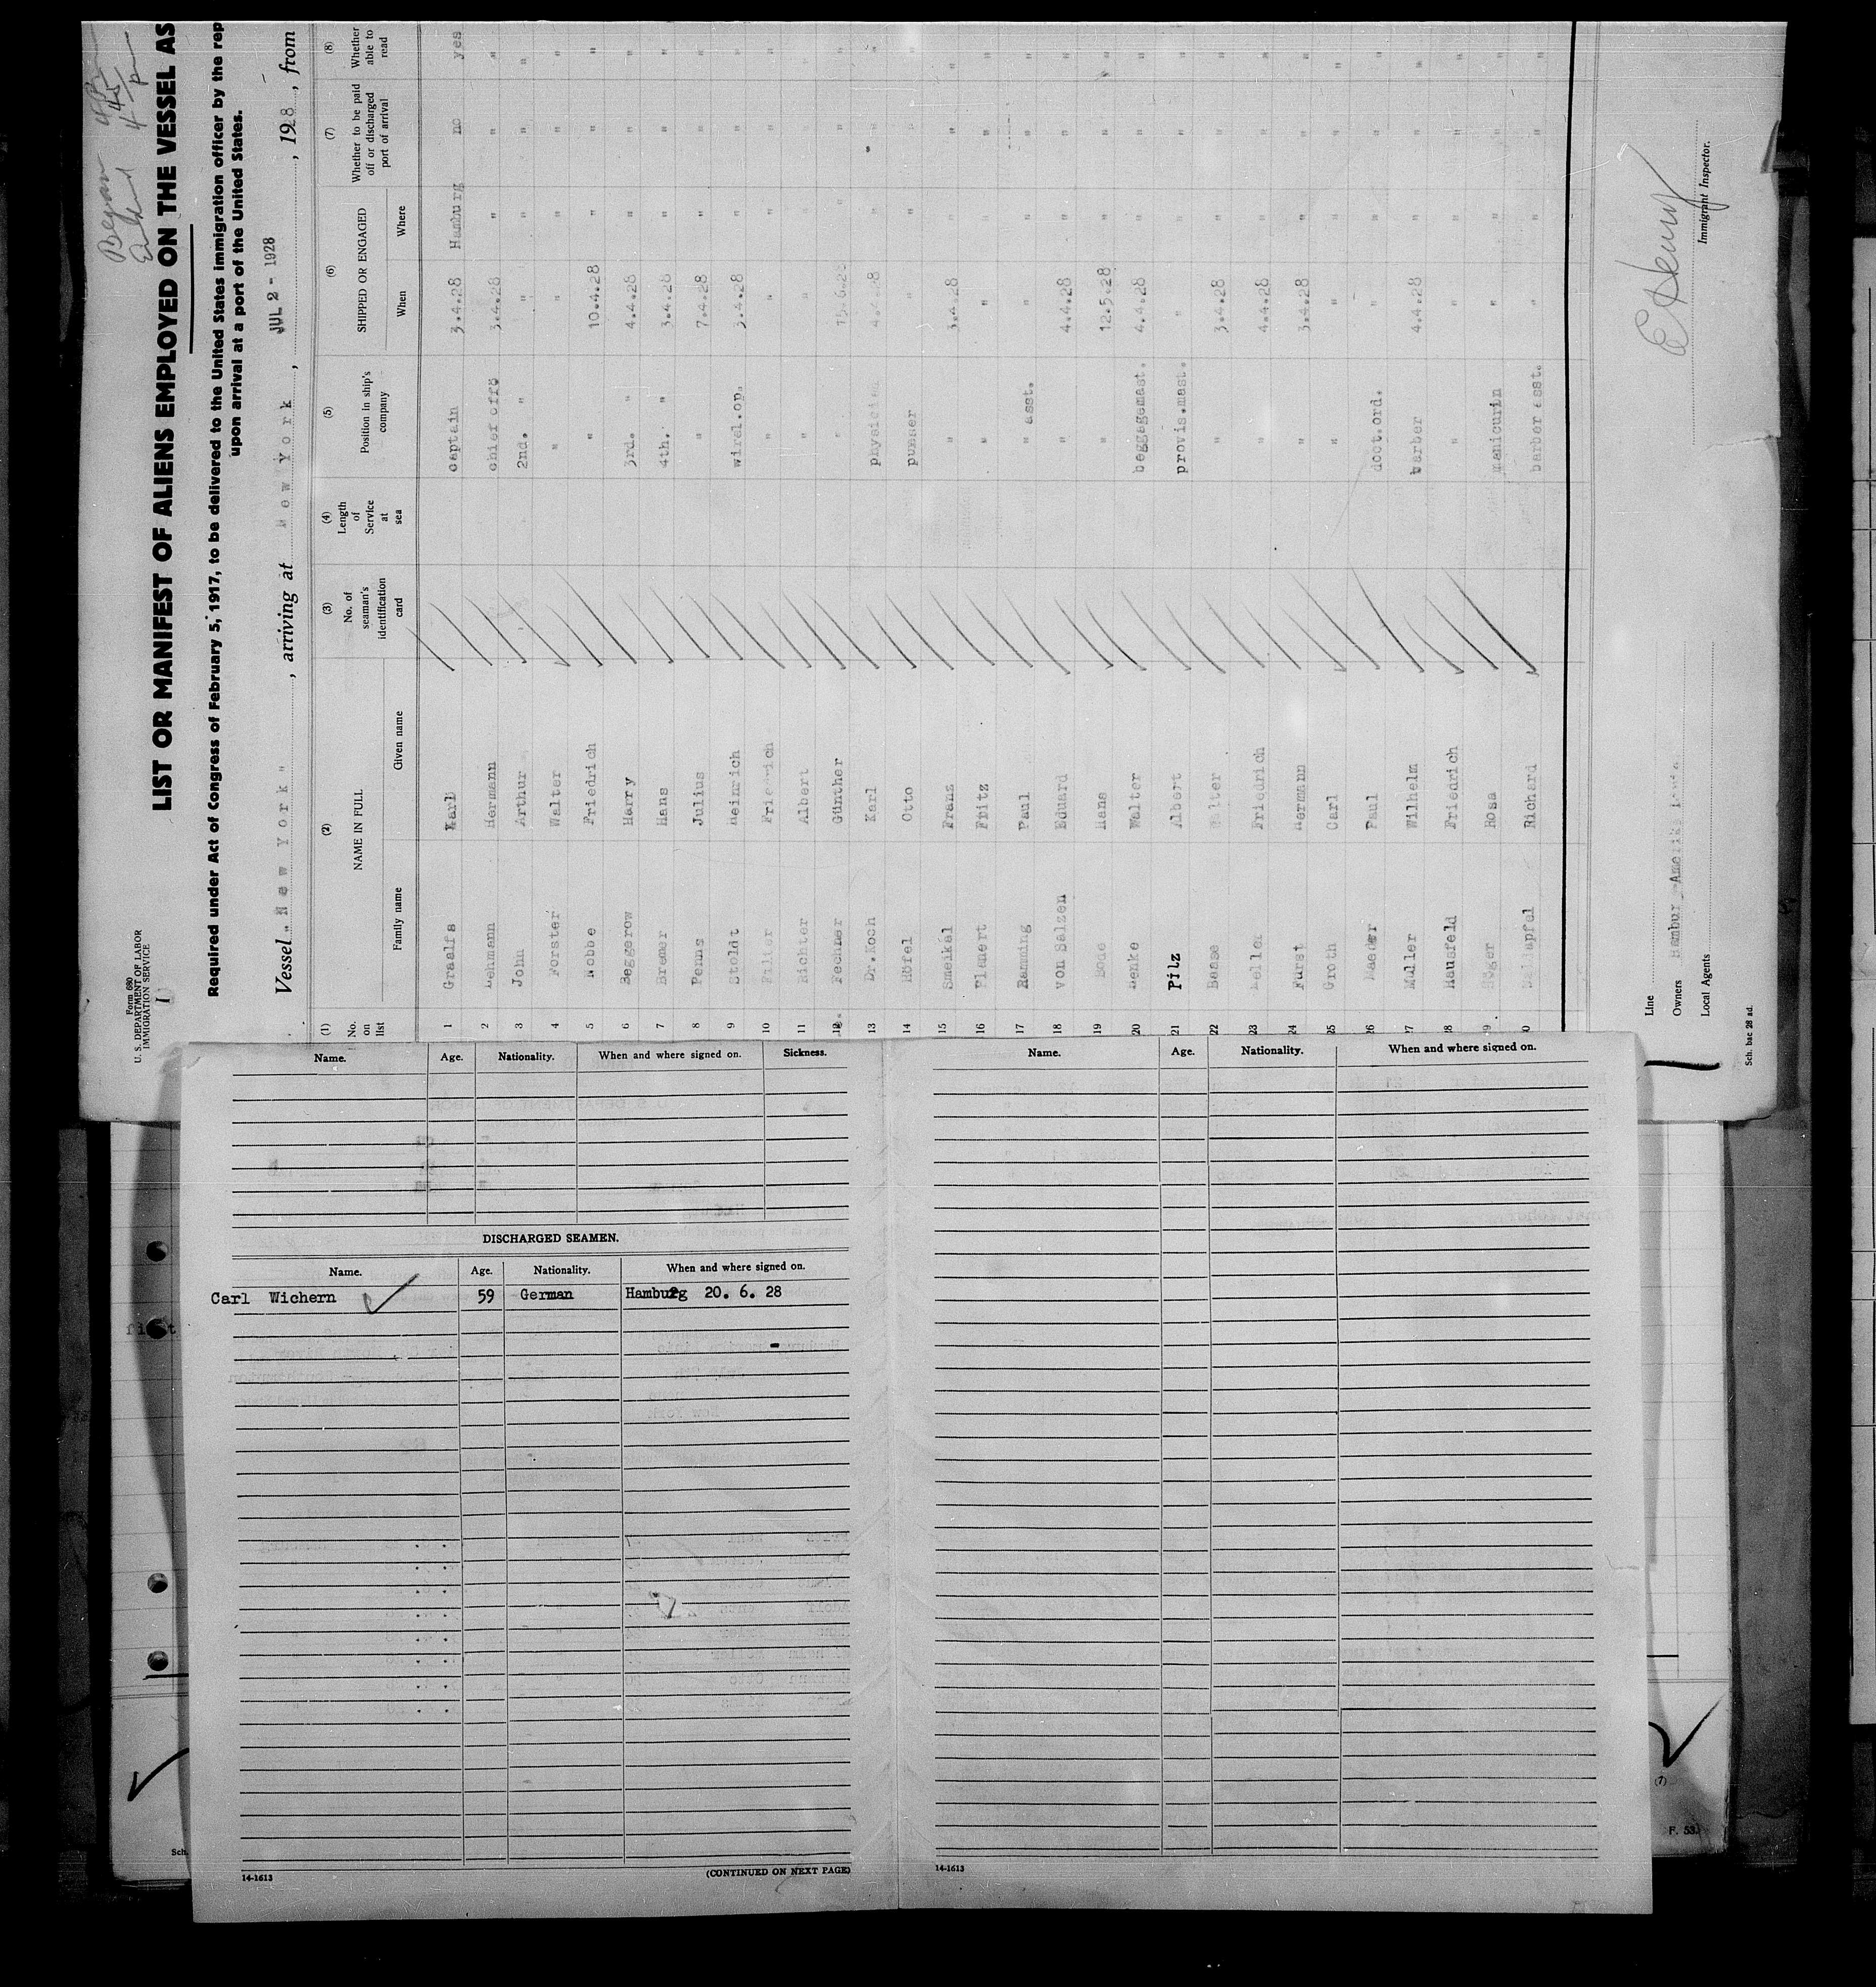 Form 680
U. S. DEPARTMENT OF LABOR
IMMIGRATION SERVICE
I
Began
4 45 pm
LIST OR MANIFEST OF ALIENS EMPLOYED ON THE VESSEL AS
Required under Act of Congress of February 5, 1917, to be delivered to the United States immigration officer by the rep
upon arrival at a port of the United States.
Vessel "New York", arriving at New York, JUL 2 - 1928, 1928, from
(1) No. on list (2) NAME IN FULL Family name Given name (3) No. of seaman's identification card (4) Length of Service at sea (5) Position in ship's company (6) SHIPPED OR ENGAGED When Where (7) Whether to be paid off or discharged port of arrival (8) Whether able to read
1 Graalfs Karl captain 3.4.28 Hamburg no yes
2 Lehmann Hermann chief offs 3.4.28 " " "
3 John Arthur 2nd. " " " " "
4 Forster Walter " " " " "
5 Nobbe Friedrich " 10.4.28 " " "
6 Beggerow Harry 3rd. " 4.4.28 " " "
7 Bremer Hans 4th. " 3.4.28 " " "
8 Penns Julius " 7.4.28 " " "
9 Stoldt Heinrich wirel.op. 3.4.28 " " "
10 Friedrich " " " "
11 Richter Albert " "
12 Fechner Günther " 15.6.28 " " "
13 Dr.Koch Karl physician 4.4.28 " " "
14 Höfel Otto " " "
15 Smeikal Franz " 3.4.28 " " "
16 Planert Fritz " " " " "
17 Ramming Paul " asst. " " "
18 von Salzen Eduard " 4.4.28 " " "
19 Bode Hans " 12.5.28 " " "
20 Benke Walter baggagemast. 4.4.28 " " "
21 Pilz Albert provis.mast. " " " "
22 Baase Walter " 3.4.28 " " "
23 Friedrich " 4.4.28 " " "
24 Fürst Hermann " 3.4.28 " " "
25 Groth Carl " " " " "
26 Paul doct.ord. " " " "
27 Müller Wilhelm barber 4.4.28 " " "
28 Hausfeld Friedrich " " " " "
29 Rosa manicurin " " " "
30 Richard barber asst. " " " "
Line
Owners Hamburg-Amerika
Local Agents
Immigrant Inspector.
Name. Age. Nationality. When and where signed on. Sickness.
DISCHARGED SEAMEN.
Name. Age. Nationality. When and where signed on.
Carl Wichern 59 German Hamburg 20. 6. 28
14-1613
(CONTINUED ON NEXT PAGE)
Name. Age. Nationality. When and where signed on.
14-1613
Sch.
(7)
F. 53.